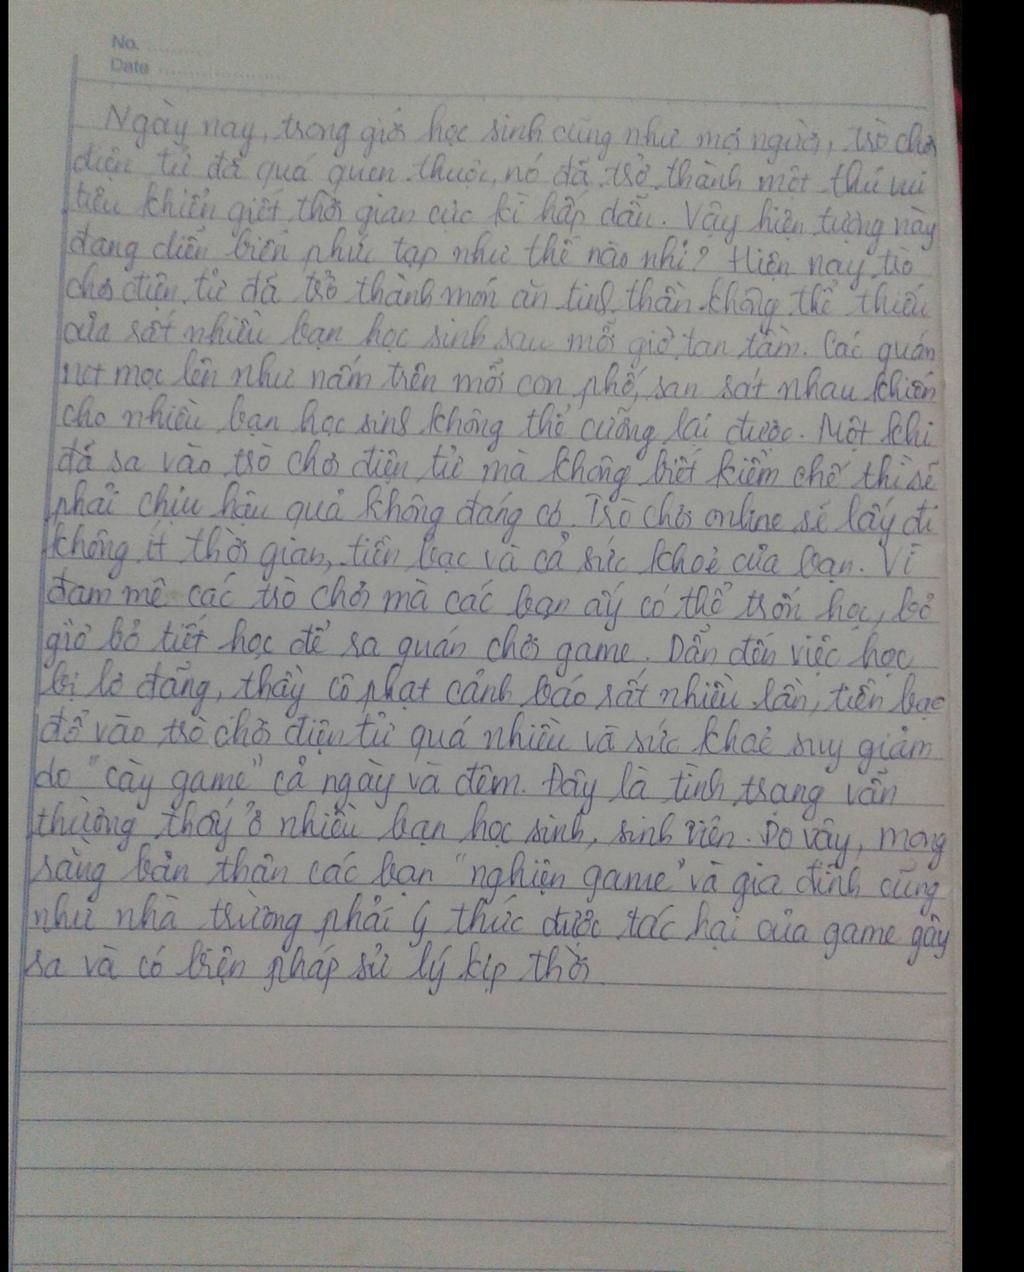 No. ..........
Date ....................
Ngày nay, trong giới học sinh cũng như mọi người, trò chơi
điện tử đã quá quen thuộc, nó đã trở thành một thú vui
tiêu khiển giết thời gian cực kì hấp dẫn. Vậy hiện tượng này
đang diễn biến phức tạp như thế nào nhỉ? Hiện nay trò
chơi điện tử đã trở thành món ăn tinh thần không thể thiếu
của rất nhiều bạn học sinh sau mỗi giờ tan tầm. Các quán
net mọc lên như nấm trên mỗi con phố, san sát nhau khiến
cho nhiều bạn học sinh không thể cưỡng lại được. Một khi
đã sa vào trò chơi điện tử mà không biết kiềm chế thì sẽ
phải chịu hậu quả không đáng có. Trò chơi online sẽ lấy đi
không ít thời gian, tiền bạc và cả sức khoẻ của bạn. Vì
đam mê các trò chơi mà các bạn ấy có thể trốn học, bỏ
giờ bỏ tiết học để ra quán chơi game. Dẫn đến việc học
bị lơ đãng, thầy cô phạt cảnh báo rất nhiều lần, tiền bạc
đổ vào trò chơi điện tử quá nhiều và sức khoẻ suy giảm
do "cày game" cả ngày và đêm. Đây là tình trạng vẫn
thường thấy ở nhiều bạn học sinh, sinh viên. Do vậy, mong
rằng bản thân các bạn "nghiện game" và gia đình cũng
như nhà trường phải ý thức được tác hại của game gây
ra và có biện pháp sử lý kịp thời